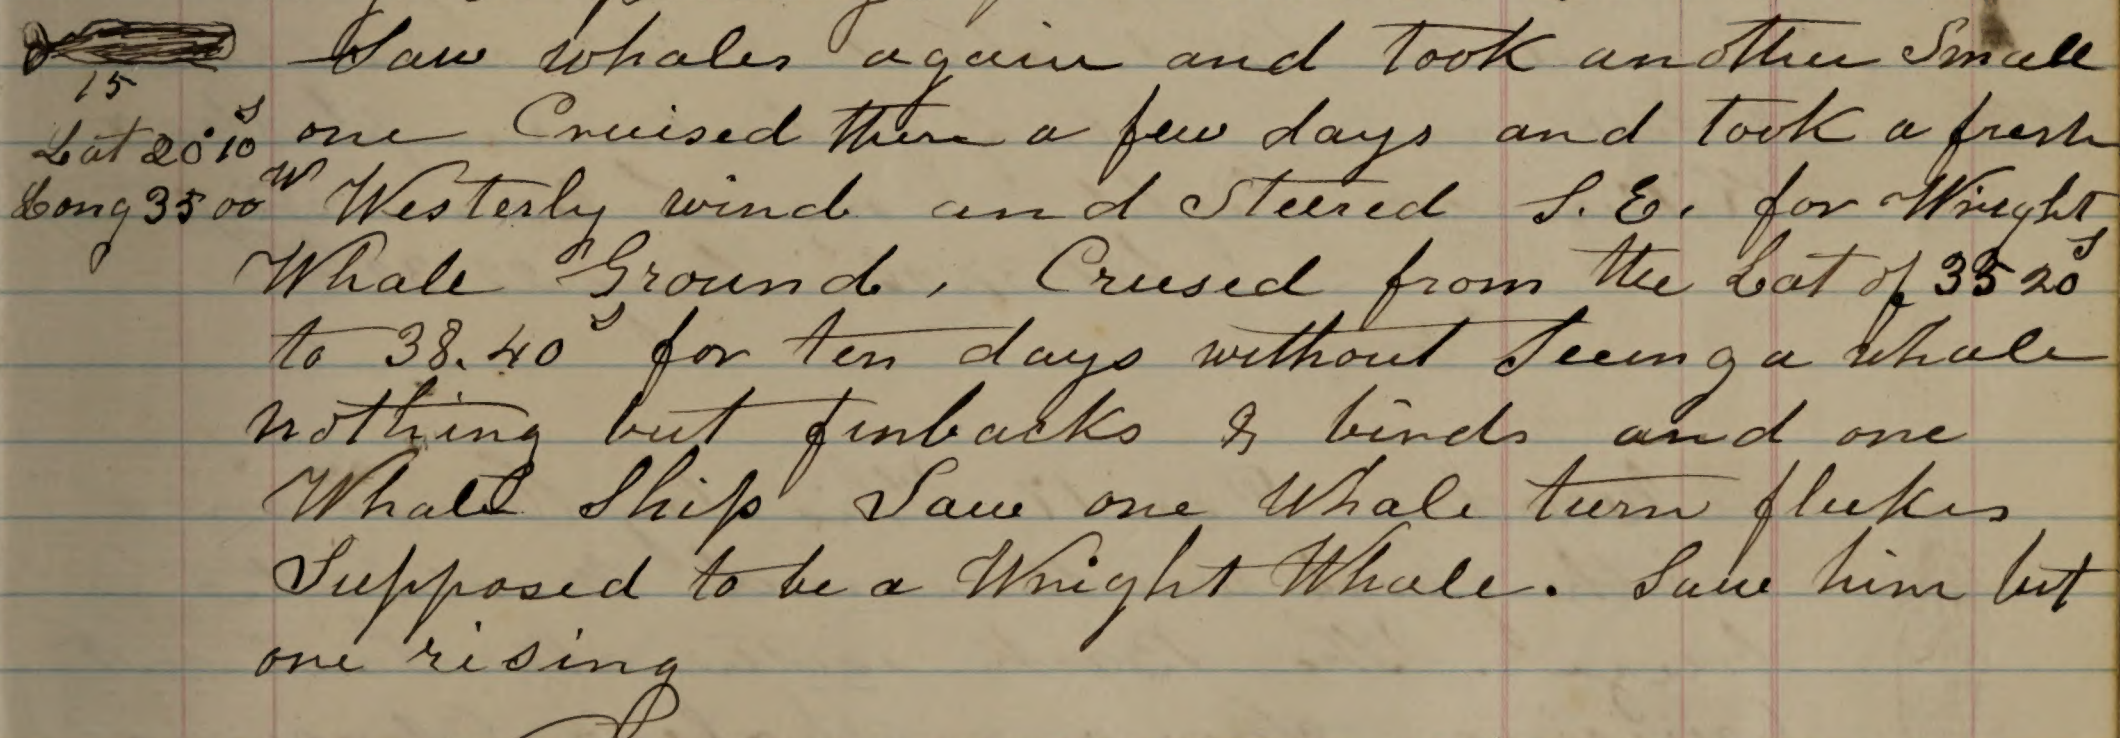 Saw whales again and took another Small
15
one Cruised there a few days and took a fresh
Lat 20° 10 S
Westerly wind and Steered S. E. for Wright
Long 35 00 W
Whale Ground, Crused from the Lat of 35 20 S
to 38.40 S for ten days without Seeing a whale
nothing but finbacks & birds and one
Whale Ship Saw one Whale turn flukes
Supposed to be a Wright Whale. Saw him but
one rising